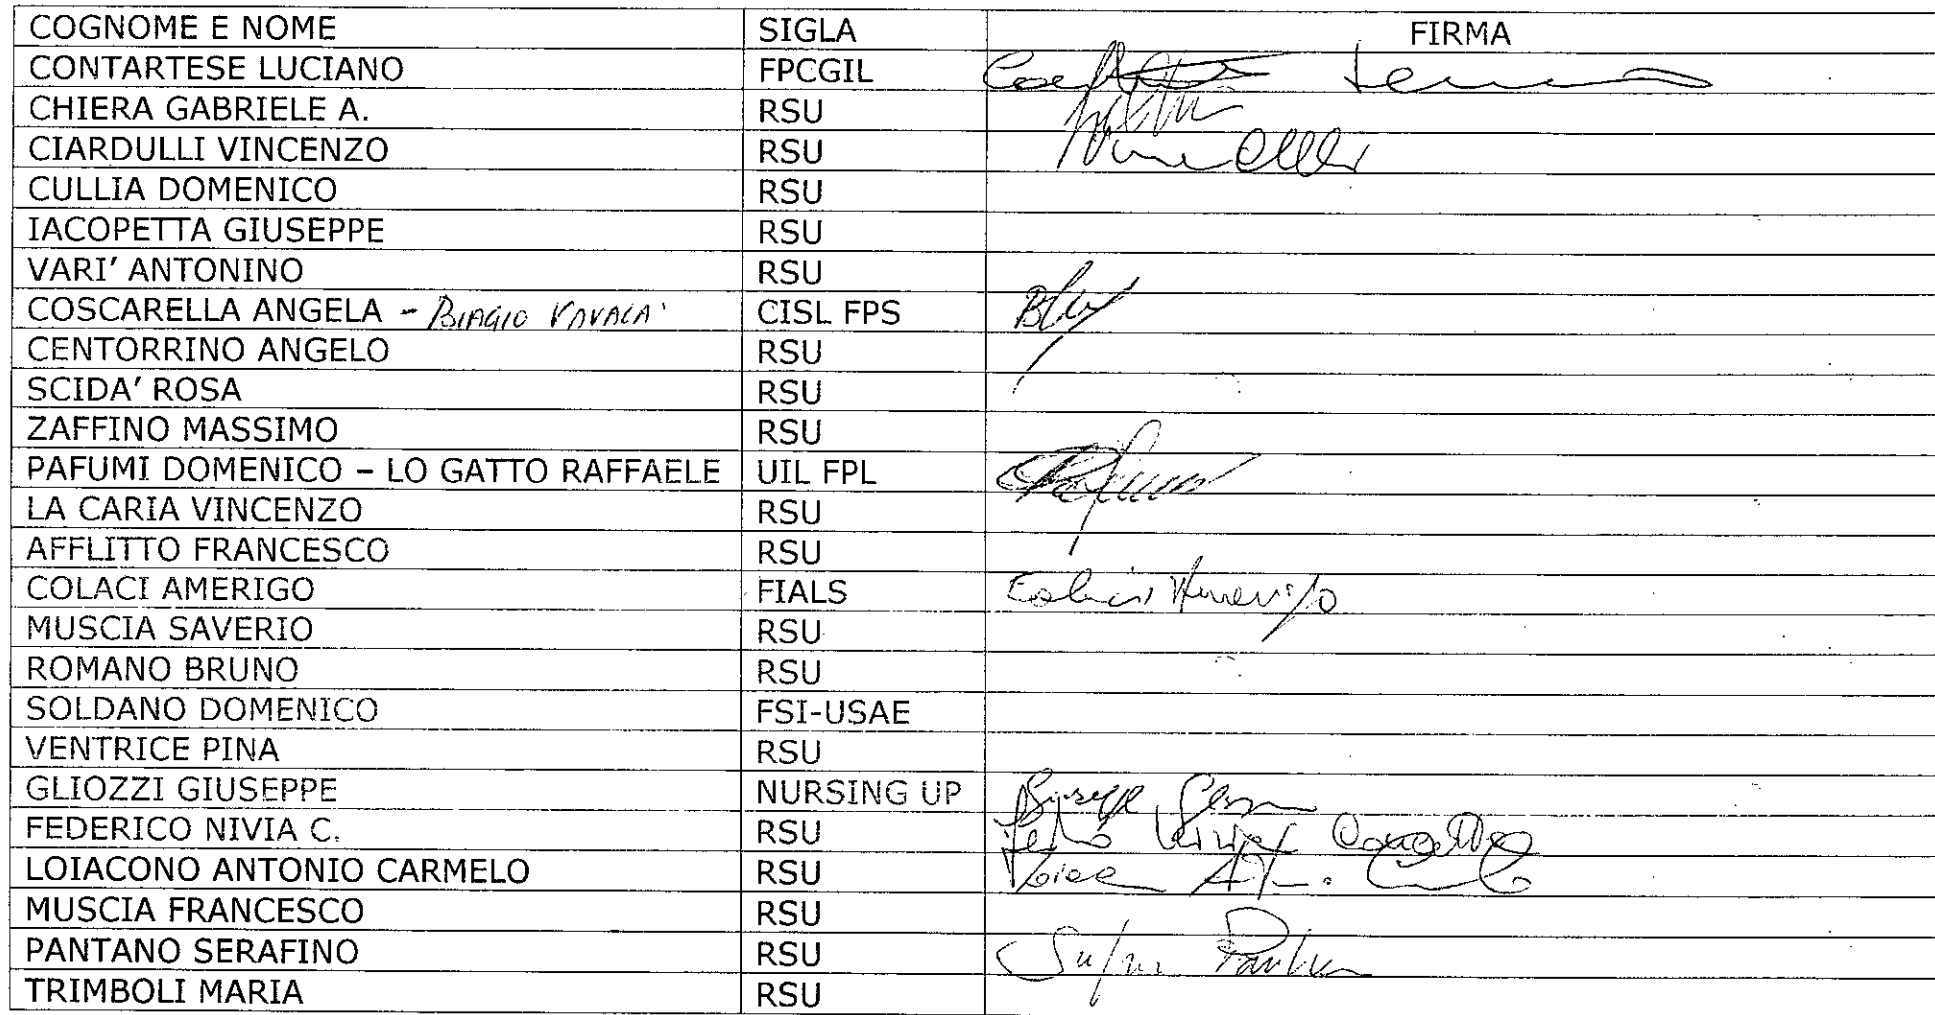 COGNOME E NOME SIGLA FIRMA
CONTARTESE LUCIANO FPCGIL
CHIERA GABRIELE A. RSU
CIARDULLI VINCENZO RSU
CULLIA DOMENICO RSU
IACOPETTA GIUSEPPE RSU
VARI' ANTONINO RSU
COSCARELLA ANGELA - BIAGIO VAVALA' CISL FPS
CENTORRINO ANGELO RSU
SCIDA' ROSA RSU
ZAFFINO MASSIMO RSU
PAFUMI DOMENICO – LO GATTO RAFFAELE UIL FPL
LA CARIA VINCENZO RSU
AFFLITTO FRANCESCO RSU
COLACI AMERIGO FIALS Colaci Amerigo
MUSCIA SAVERIO RSU
ROMANO BRUNO RSU
SOLDANO DOMENICO FSI-USAE
VENTRICE PINA RSU
GLIOZZI GIUSEPPE NURSING UP
FEDERICO NIVIA C. RSU
LOIACONO ANTONIO CARMELO RSU
MUSCIA FRANCESCO RSU
PANTANO SERAFINO RSU
TRIMBOLI MARIA RSU